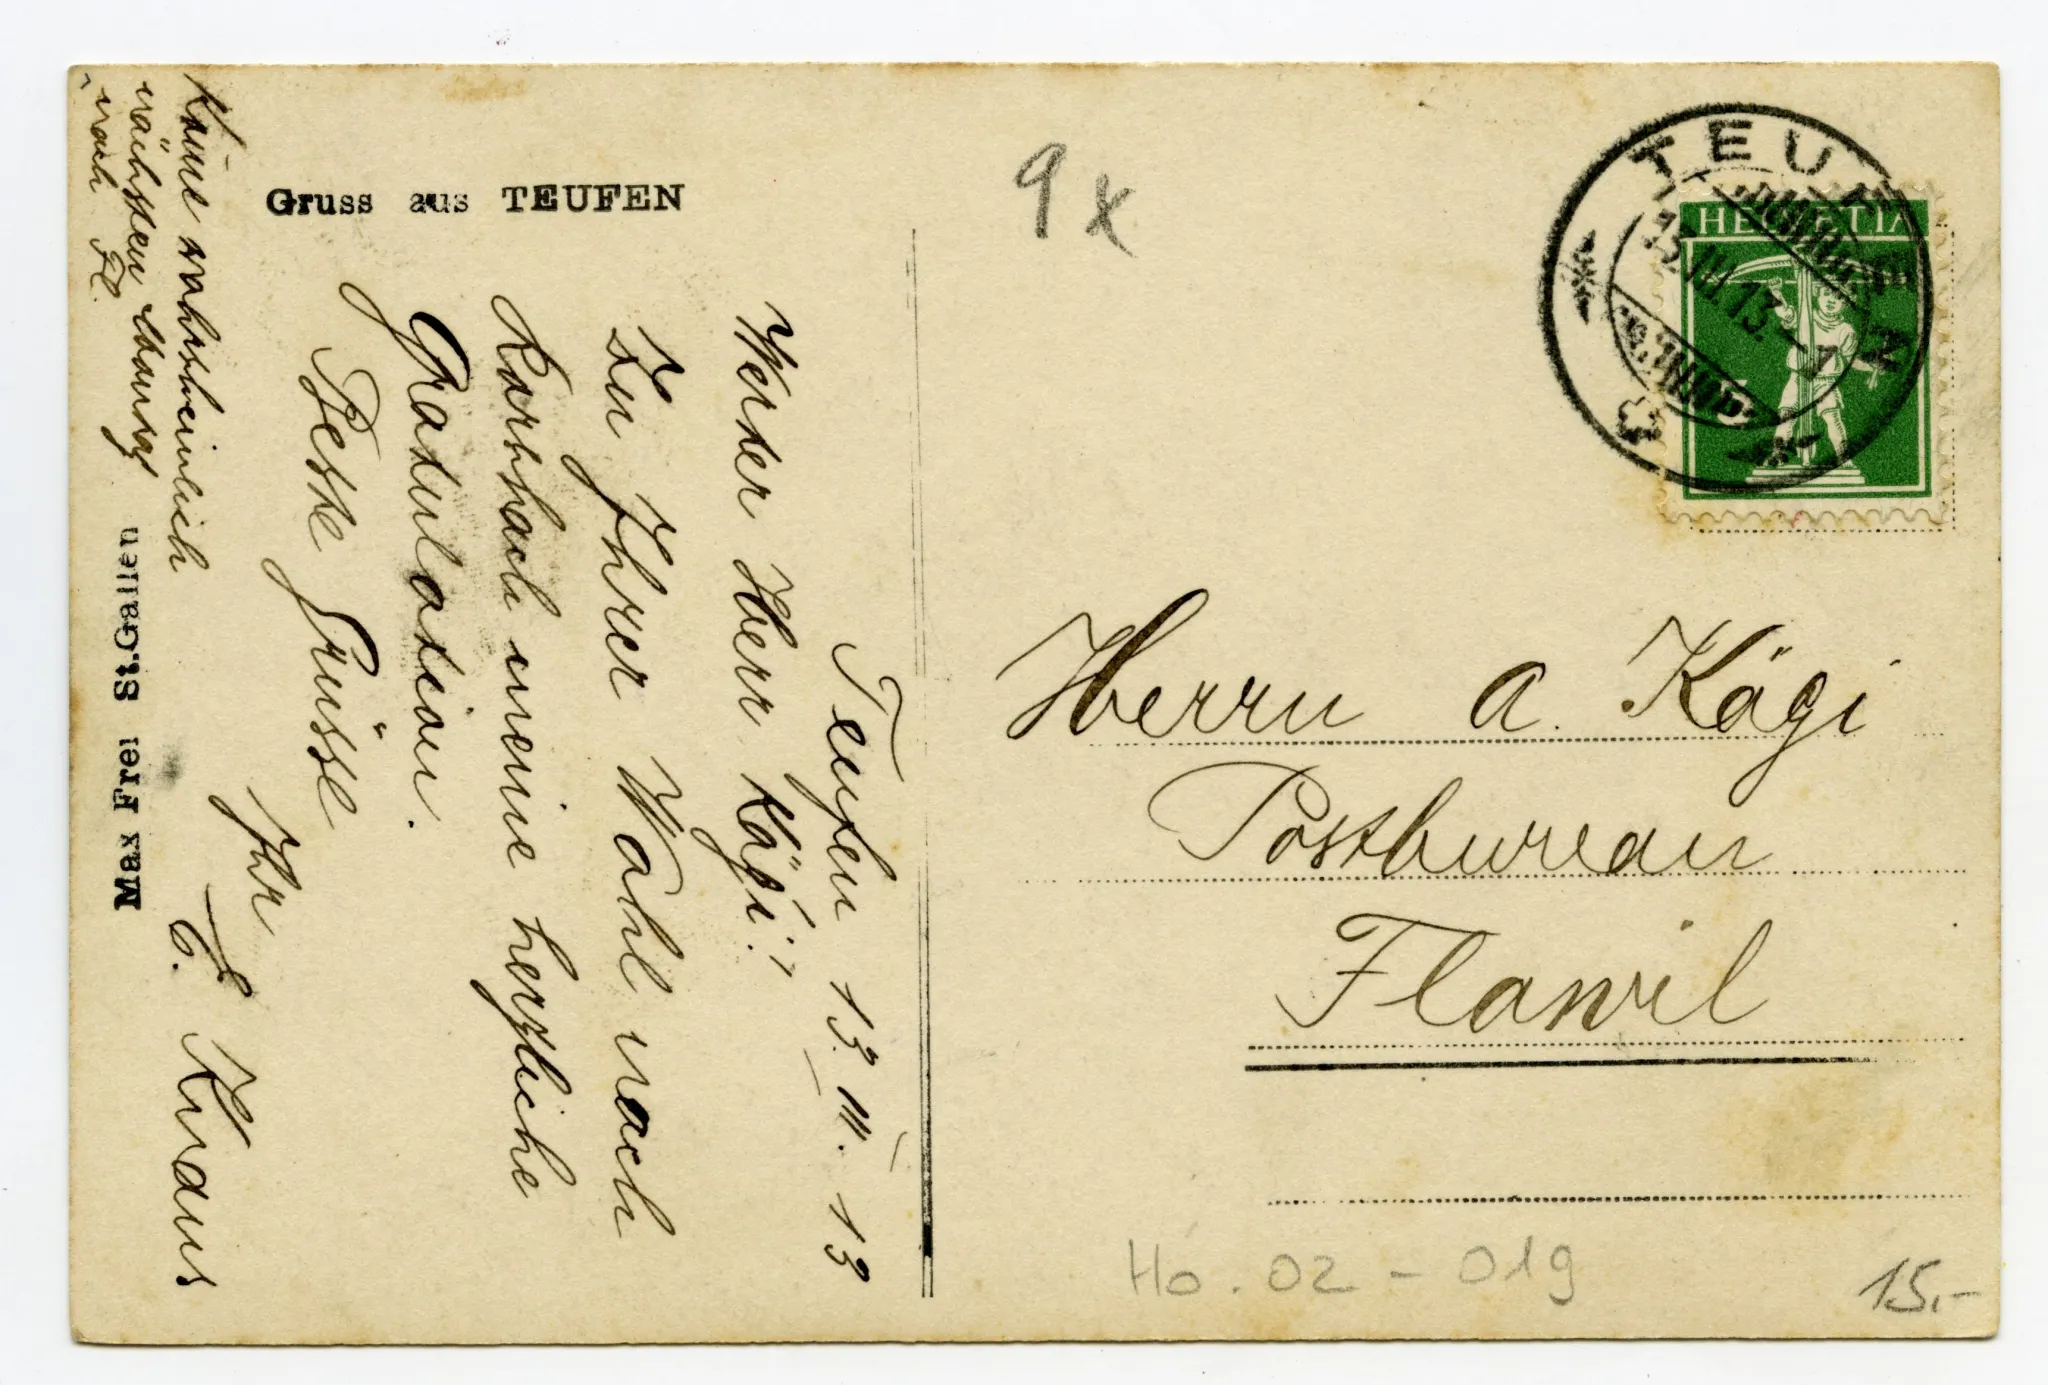 Gruss aus TEUFEN
Teufen 13. III. 13
Werter Herr Kägi!
Zu Ihrer Wahl nach
Rorschach meine herzliche
Gratulation.
Beste Grüsse
Ihr
E. Kraus
Käme wahrscheinlich
nächsten
nach Fl.
Max Frei St.Gallen
9 x
TEUFEN
13.III.13.
HELVETIA
5
Herrn A. Kägi
Postbureau
Flawil
Ho. 02-019
15.-